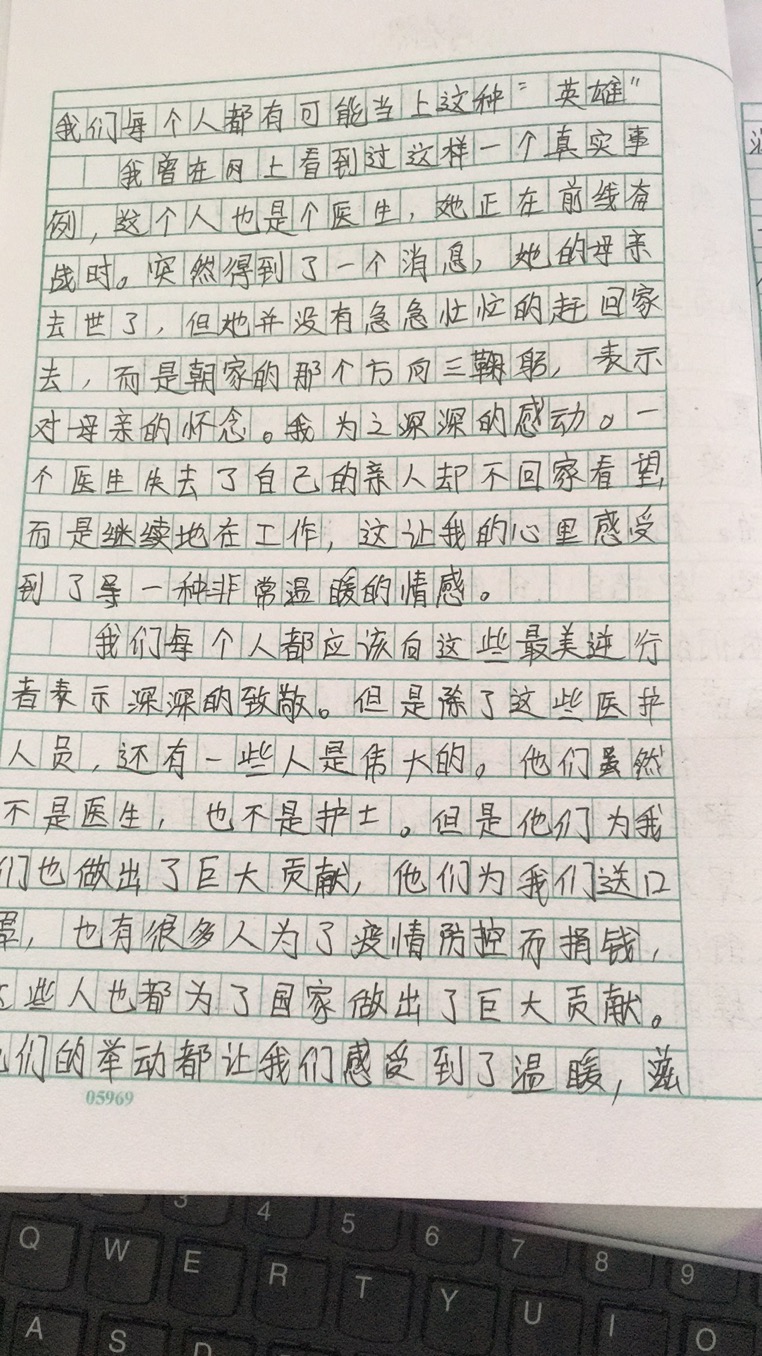 我们每个人都有可能当上这种“英雄”
我曾在网上看到过这样一个真实事
例,这个人也是个医生,她正在前线奋
战时。突然得到了一个消息,她的母亲
去世了,但她并没有急急忙忙的赶回家
去,而是朝家的那个方向三鞠躬,表示
对母亲的怀念。我为之深深的感动。一
个医生失去了自己的亲人却不回家看望
而是继续地在工作,这让我的心里感受
到了另一种非常温暖的情感。
我们每个人都应该向这些最美逆行
者表示深深的致敬。但是除了这些医护
人员,还有一些人是伟大的。他们虽然
不是医生,也不是护士。但是他们为我
们也做出了巨大贡献,他们为我们送口
罩,也有很多人为了疫情防控而捐钱,
这些人也都为了国家做出了巨大贡献。
他们的举动都让我们感受到了温暖,滋
05969
Q W E R T Y U I
3 4 5 6 7 8 9
A S D O